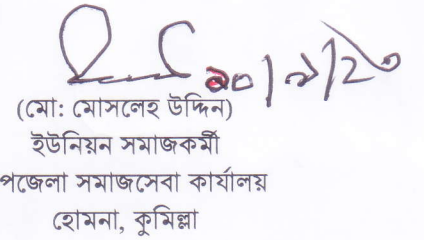 (মো: মোসলেহ উদ্দিন)
ইউনিয়ন সমাজকর্মী
পজেলা সমাজসেবা কার্যালয়
হোমনা, কুমিল্লা